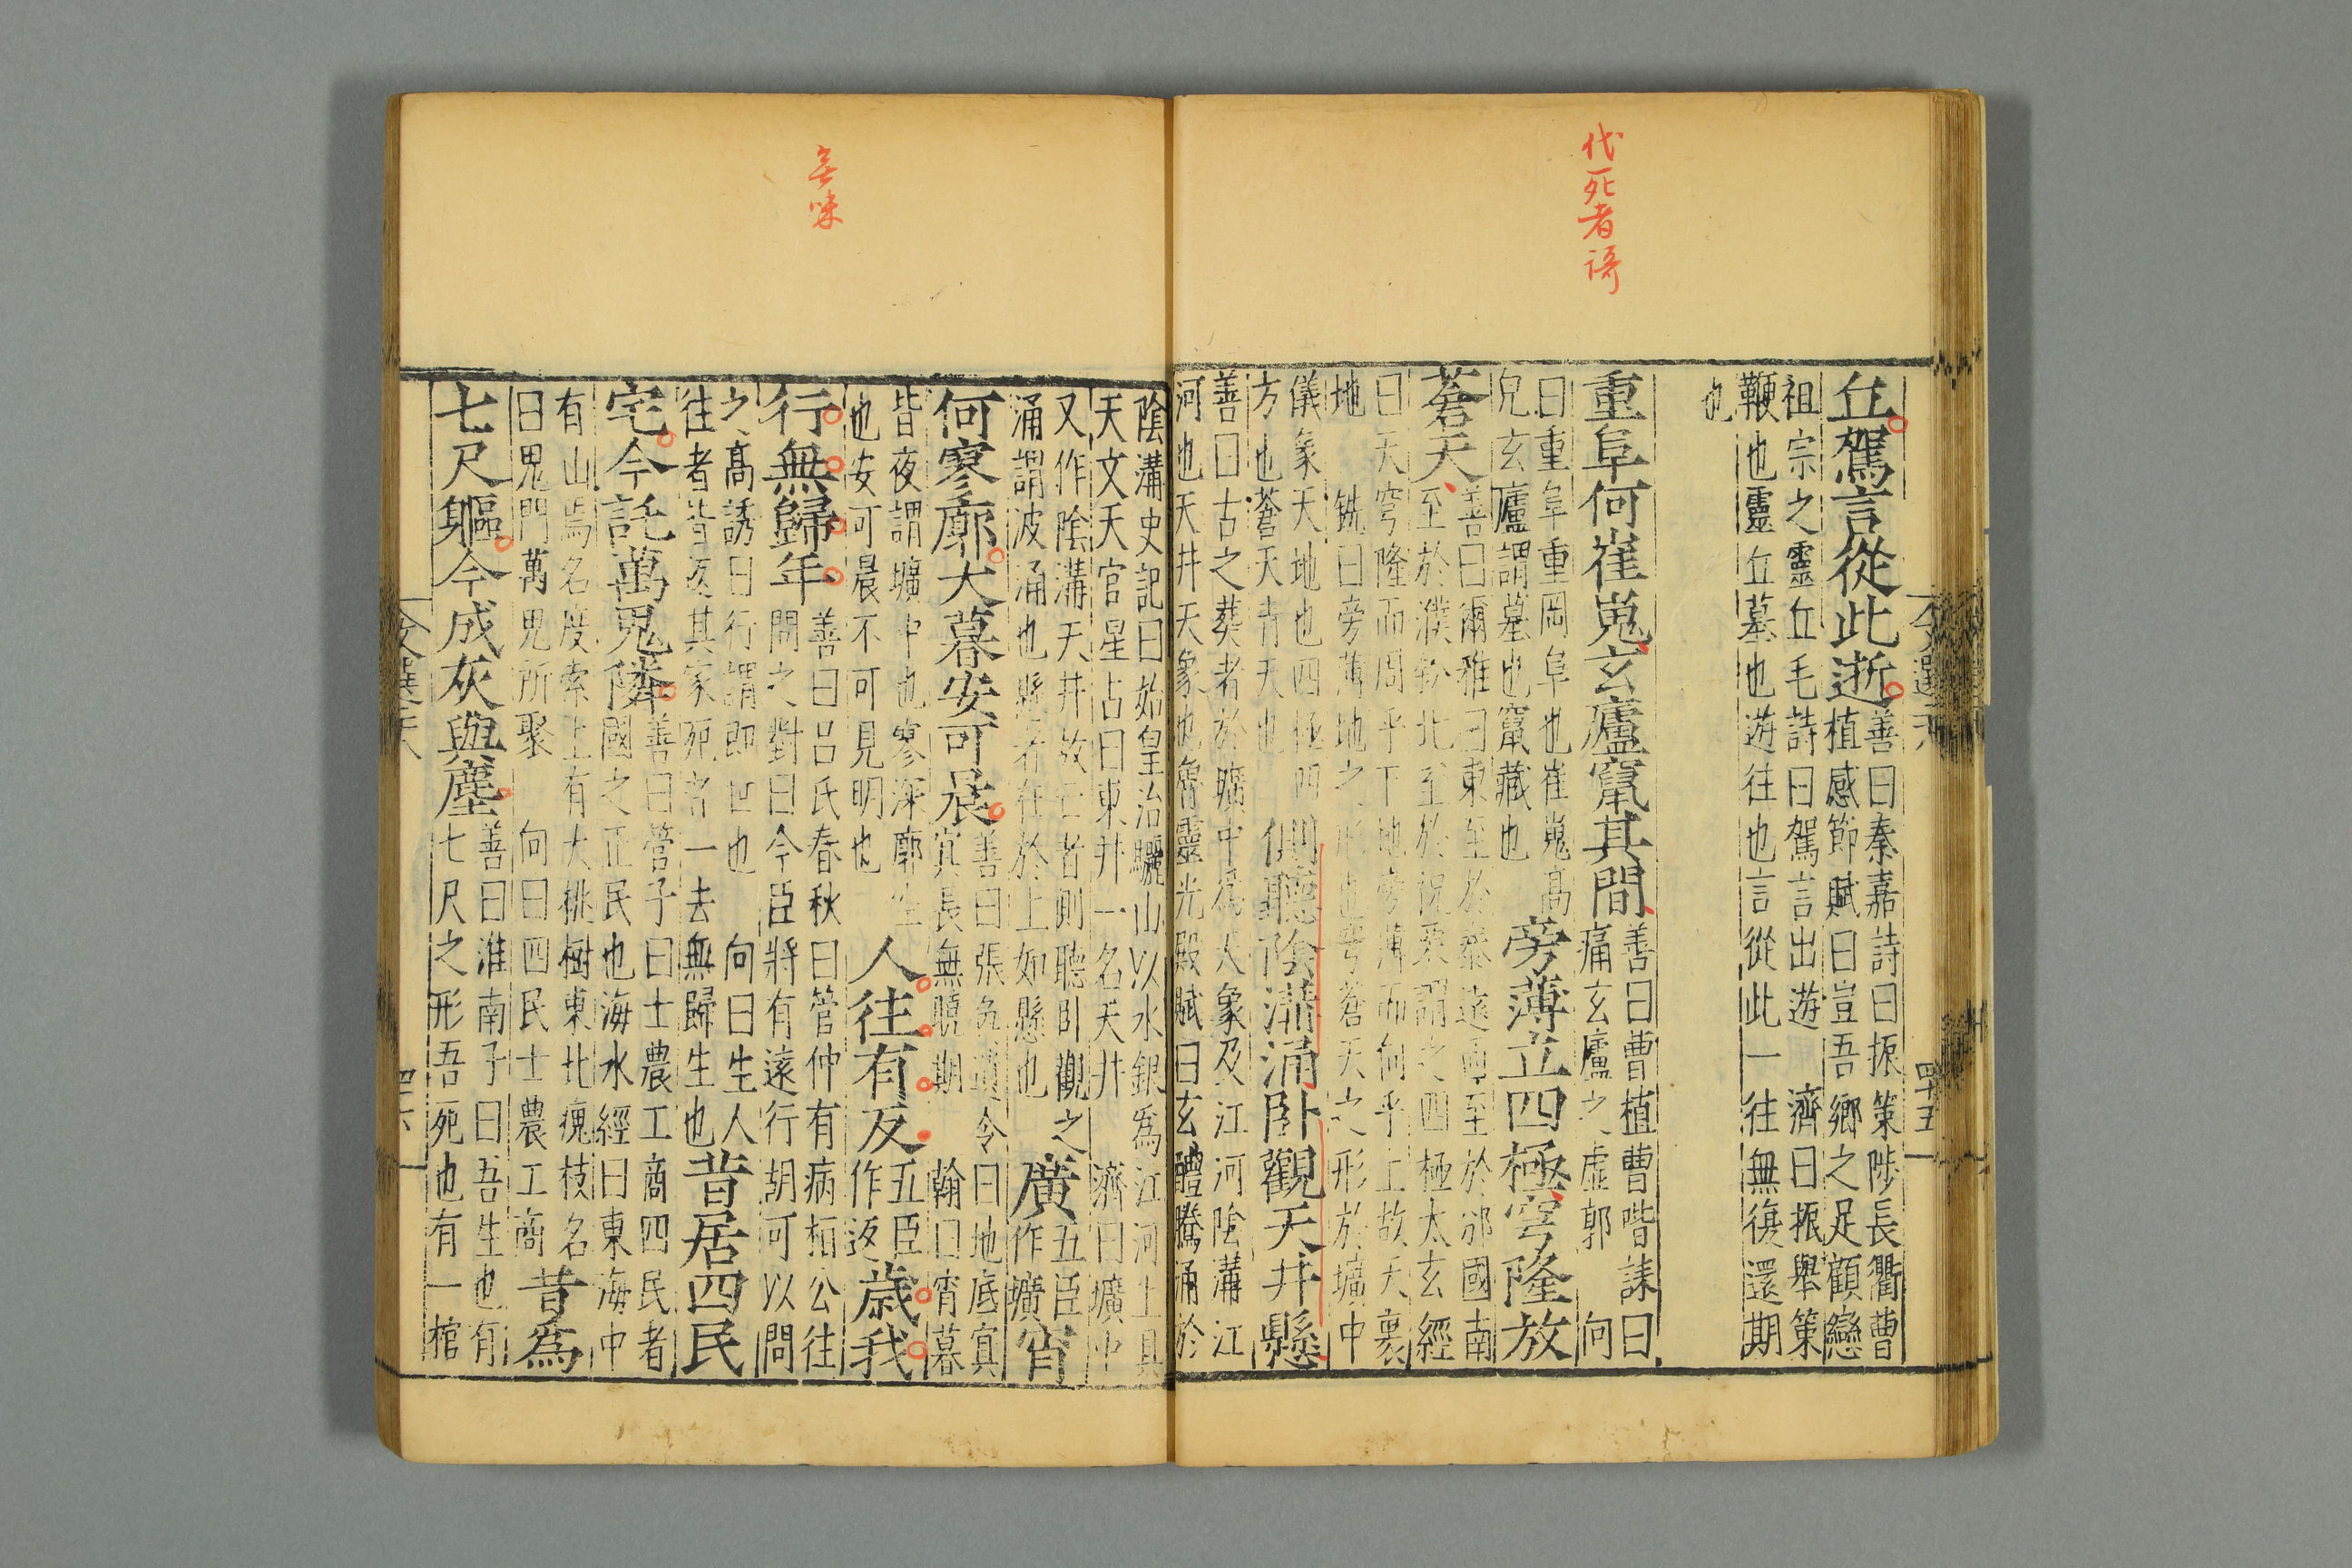 代死者語
丘駕言從此逝善曰秦嘉詩曰振策陟長衢曹
植感節賦曰豈吾鄉之足顧戀
祖宗之靈丘毛詩曰駕言出遊 濟曰振舉策
鞭也靈丘墓也遊往也言從此一往無復還期
也
重阜何崔嵬玄廬竄其間善曰曹植曹喈誄曰
痛玄廬之虛郭 向
曰重阜重岡阜也崔嵬高
皃玄廬謂墓也竄藏也
旁薄立四極穹隆放
蒼天善曰爾雅曰東至於泰遠西至於邠國南
至於濮鈆北至於祝栗謂之四極太玄經
曰天穹隆而周乎下地旁薄而向乎上故天裏
地 銑曰旁薄地之形也穹蒼天之形於壙中
儀象天地也四極四
方也蒼天青天也
側聽陰溝涌臥觀天井懸
善曰古之葬者於壙中爲天象及江河陰溝江
河也天井天象也魯靈光殿賦曰玄醴騰涌於
無味
陰溝史記曰始皇治驪山以水銀爲江河上具
天文天官星占曰東井一名天井 濟曰壙中
又作陰溝天井故云者則聽臥觀之
涌謂波涌也懸者在於上如懸也
廣五臣
作壙宵
何寥廓大暮安可晨善曰張奐遺令曰地底冥
冥長無曉期 翰曰宵暮
皆夜謂壙中也寥深廓空
也安可晨不可見明也
人往有反五臣
作返歲我
行無歸年善曰呂氏春秋曰管仲有病桓公往
問之對曰今臣將有遠行胡可以問
之高誘曰行謂即世也 向曰生人
往者皆返其家死者一去無歸生也
昔居四民
宅今託萬鬼隣善曰管子曰士農工商四民者
國之正民也海水經曰東海中
有山焉名度索上有大桃樹東北瘣枝名
曰鬼門萬鬼所聚 向曰四民士農工商
昔爲
七尺軀今成灰與塵善曰淮南子曰吾生也有
七尺之形吾死也有一棺
四十五